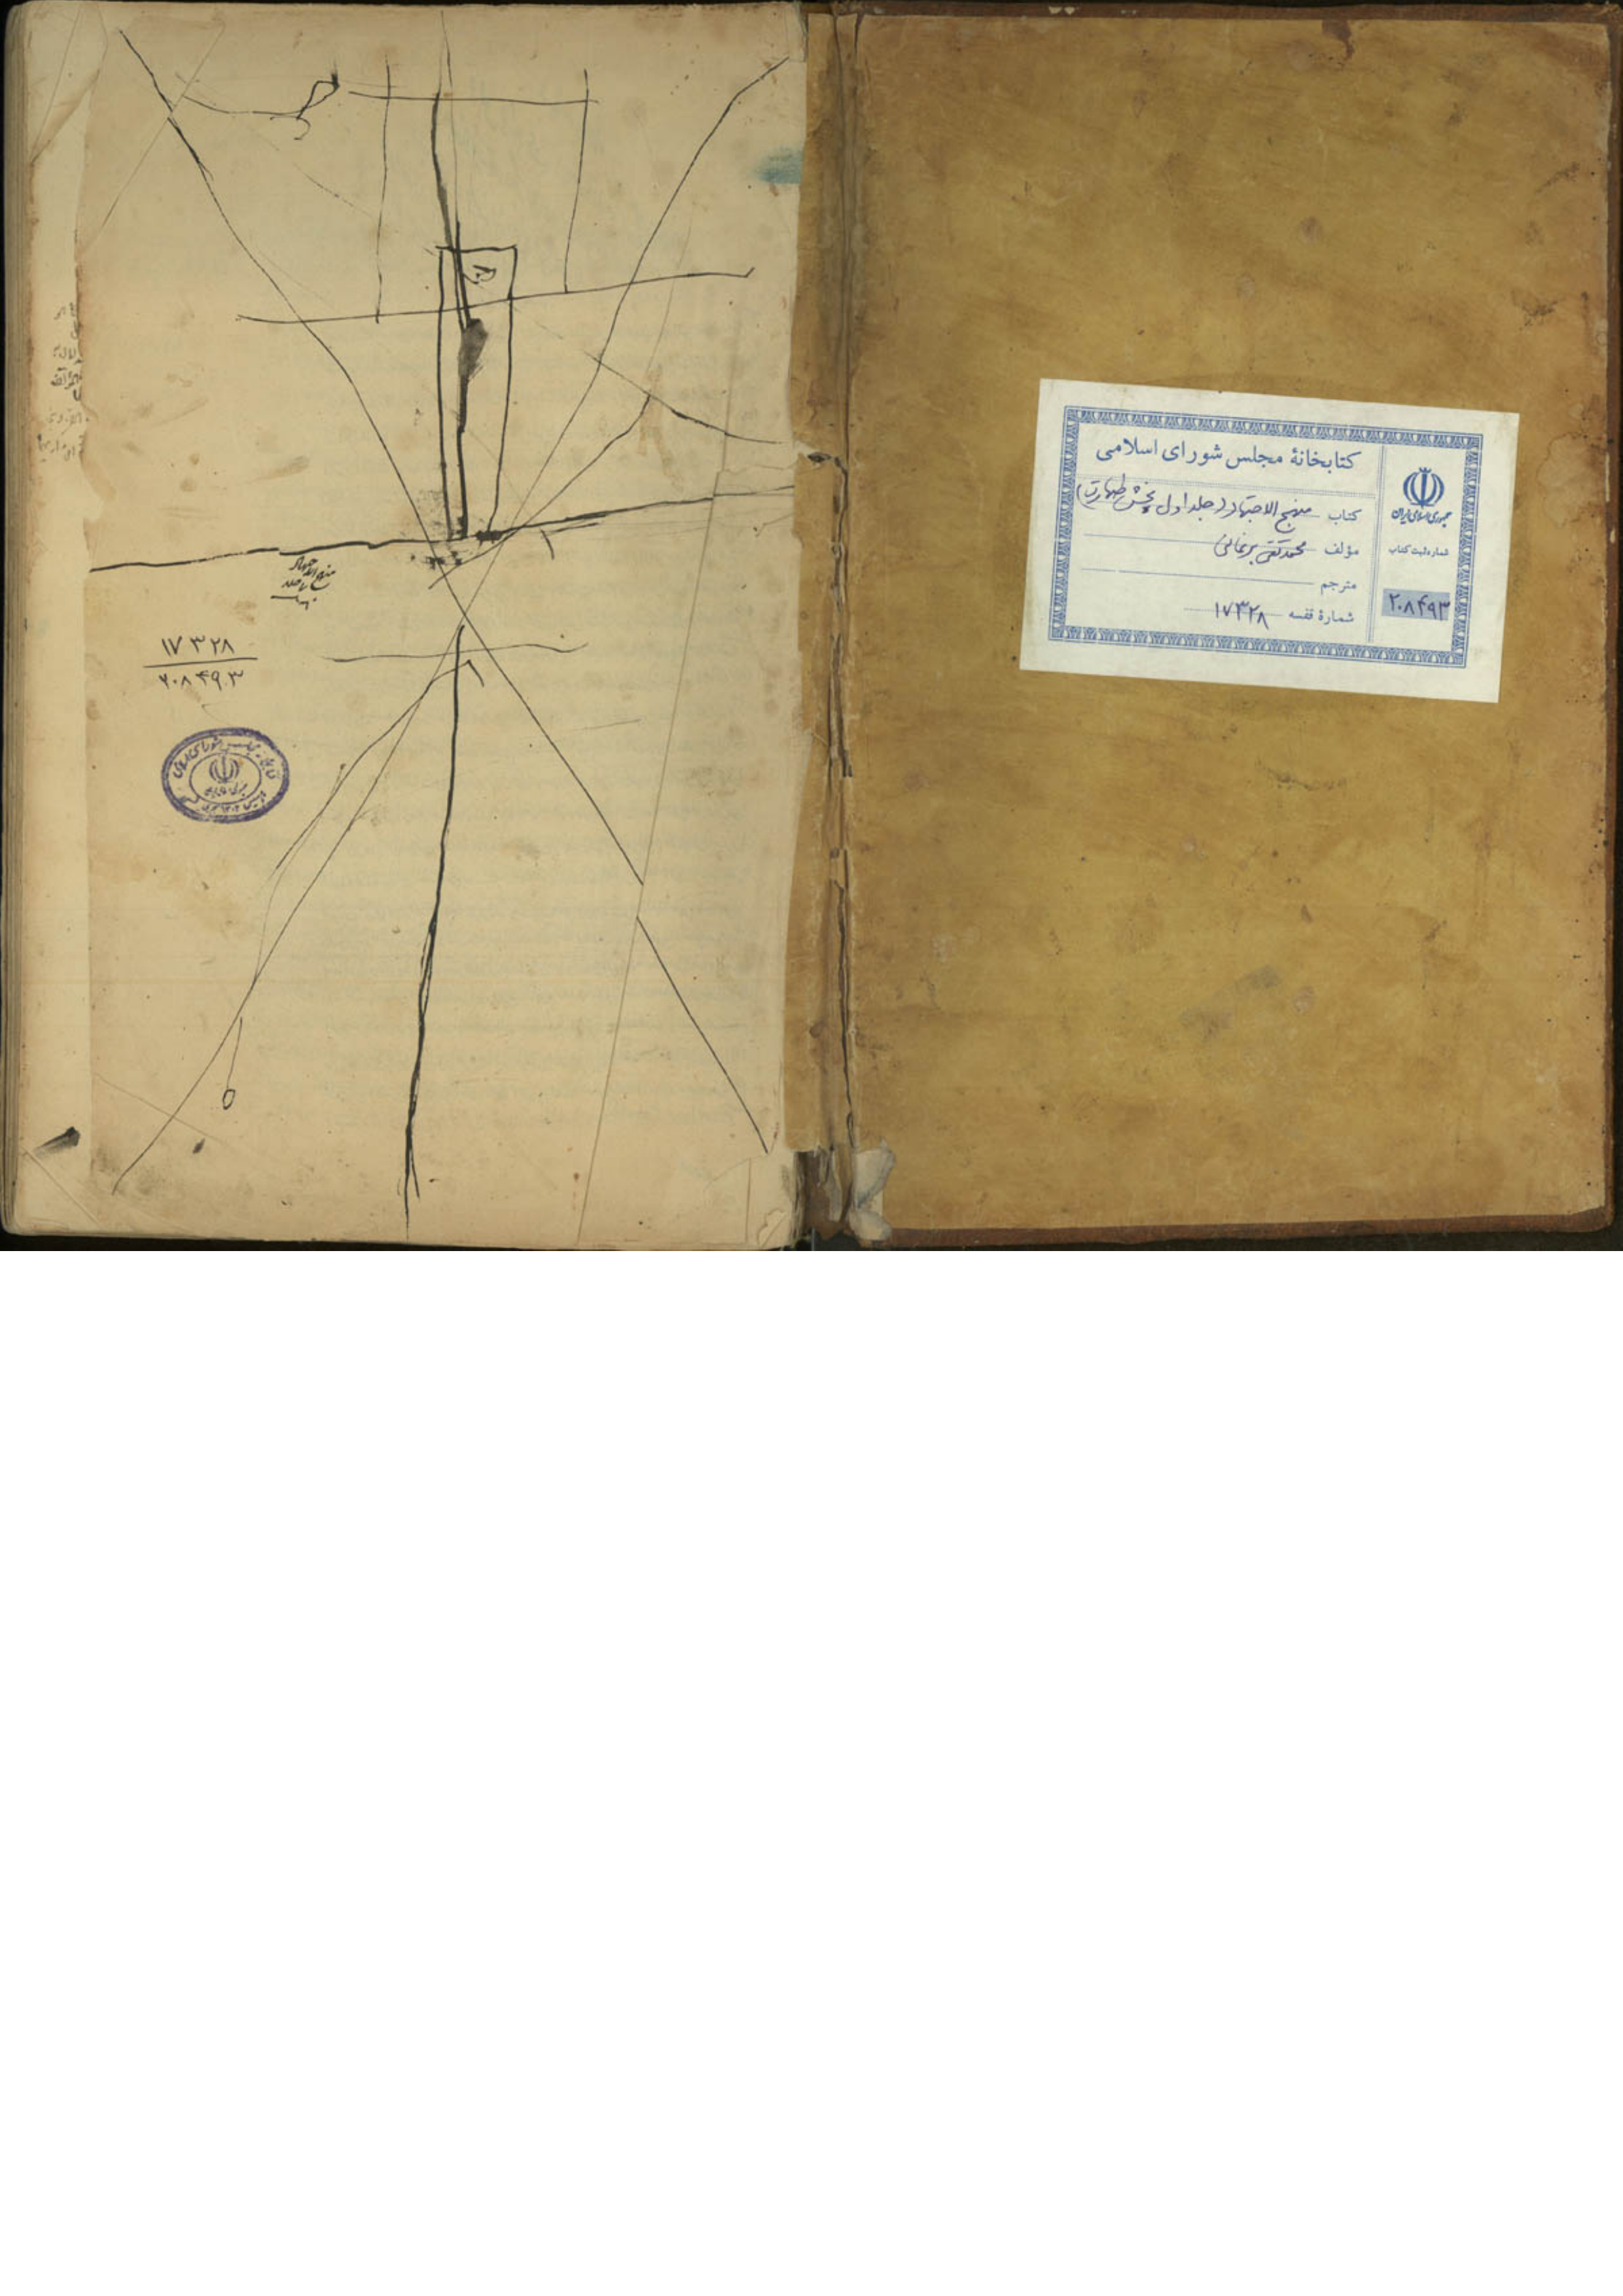 کتابخانهٔ مجلس شورای اسلامی
کتاب منهج الاجتهاد (جلد اول بخش طهارت)
مؤلف محمد تقی برغانی
مترجم
شمارهٔ قفسه ۱۷۳۲۸
جمهوری اسلامی ایران
شماره ثبت کتاب
۲۰۸۴۹۳
منهج الاجتهاد
۱۷۳۲۸
۲۰۸۴۹۳